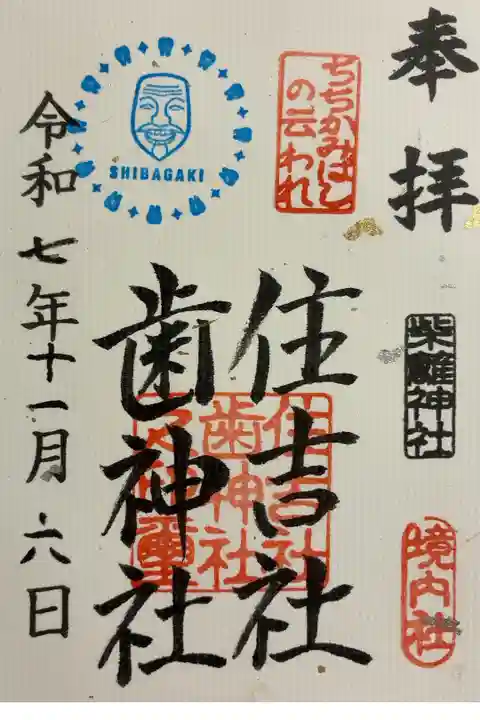 奉拝
柴籬神社
境内社
ちちかみばし
の云われ
住吉社
歯神社
住吉社
歯神社
SHIBAGAKI
令和七年十一月六日